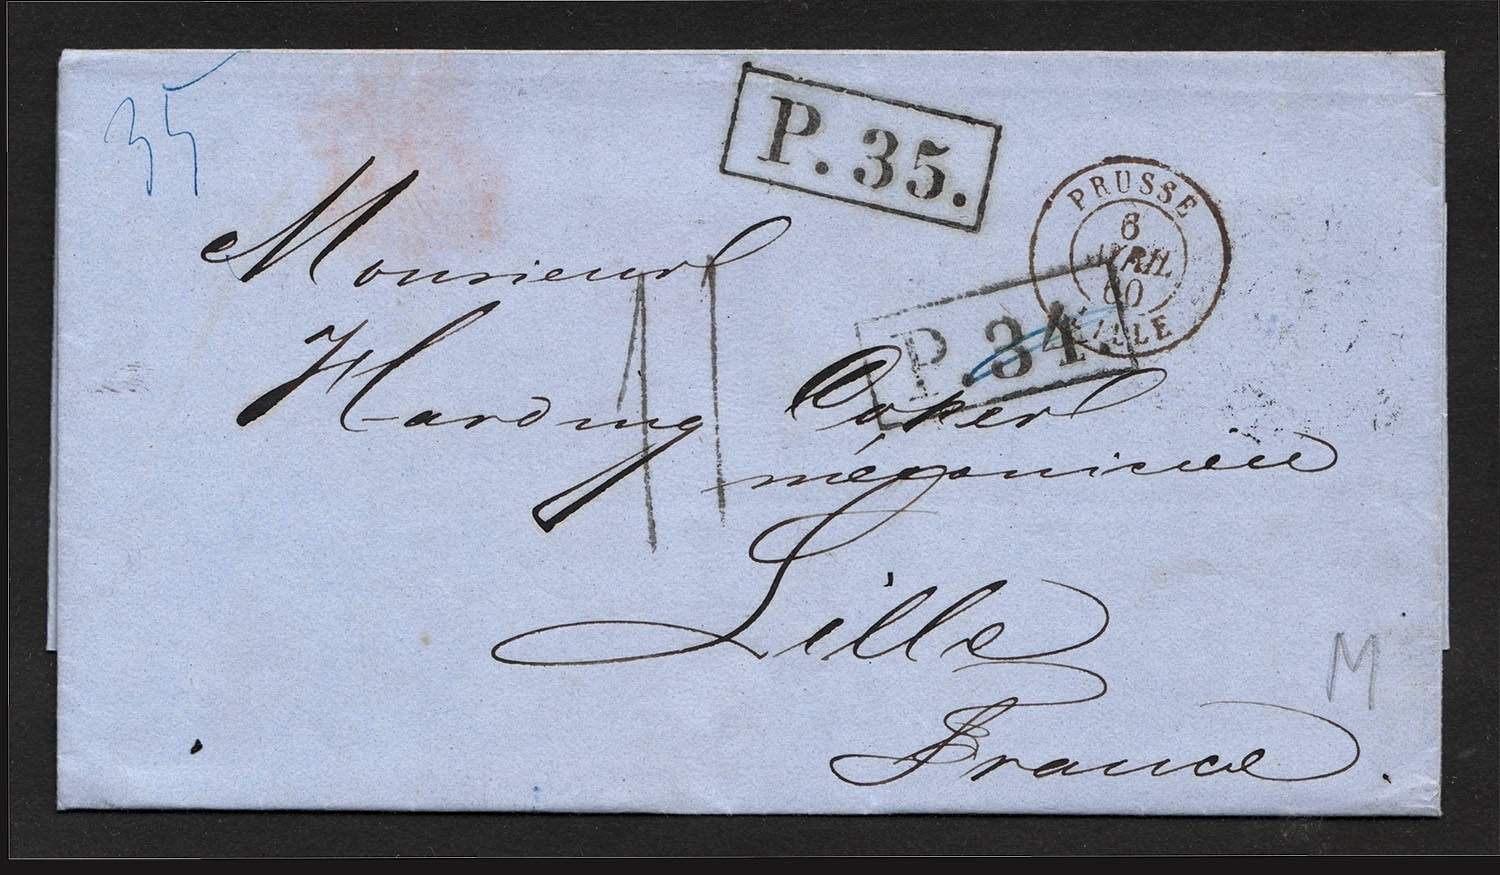 35
P. 35.
PRUSSE
6
AVRIL
60
LILLE
P. 34.
Monsieur
11
Harding Coker
mécanicien
Lille
France
M